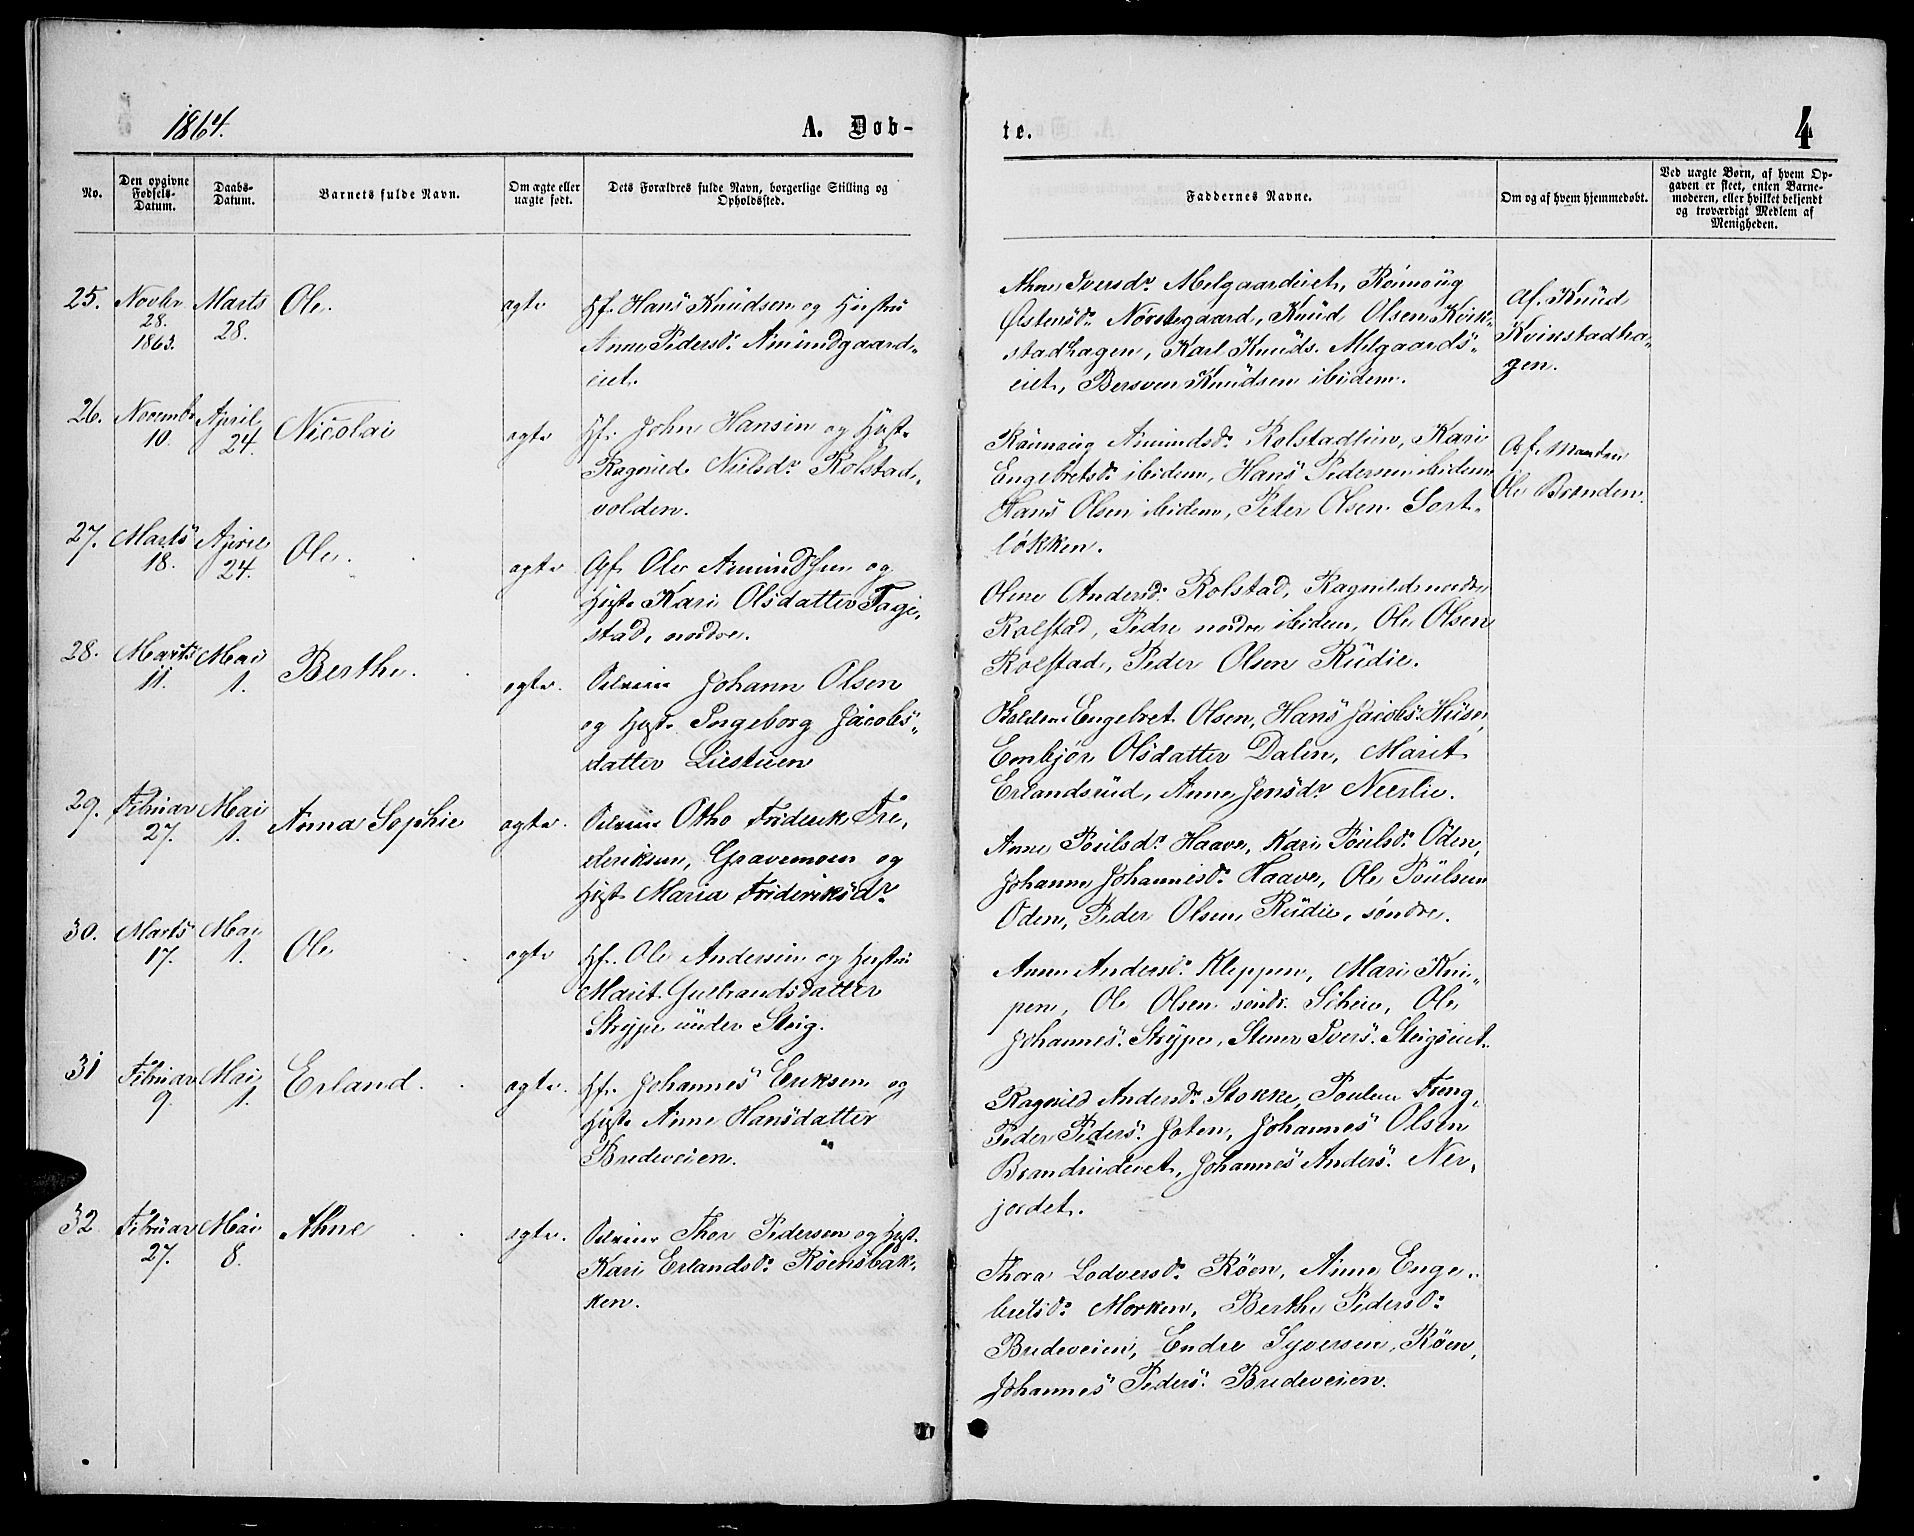 1864.
A. Døb-
te.
4
No.
Den opgivne
Fødsels-
Datum.
Daabs-
Datum.
Barnets fulde Navn.
Om ægte eller
uægte født.
Dets Forældres fulde Navn, borgerlige Stilling og
Opholdssted.
Faddernes Navne.
Om og af hvem hjemmedøbt.
Ved uægte Børn, af hvem Op-
gaven er skeet, enten Barne-
moderen, eller hvilket bekjendt
og troværdigt Medlem af
Menigheden.
25.
Novbr
28.
1863.
Marts
28.
Ole.
ægte
Hf. Hans Knudsen og Hustru
Anne Pedersdr. Amundgaard-
eiet.
Anne Iversdr. Melgaardeiet, Rønnoug
Østensdr. Nørstegaard, Knud Olsen Kvik-
stadhagen, Karl Knuds. Melgaards-
eiet, Bersven Knudsen ibidem.
Af Knud
Kvikstadha-
gen.
26.
Novembr
10.
April
24.
Nicolai
ægte
Hf. John Hansen og Hust.
Ragnild Nielsdr. Rolstad-
volden.
Rønnoug Amundsdr. Rolstadlien, Kari
Engebretsdr. ibidem, Hans Pedersen ibidem
Hans Olsen ibidem, Peter Olsen Sort-
løkken.
Af Manden
Ole Brænden.
27.
Marts
18.
April
24.
Ole.
ægte
Gf. Ole Amundsen og
Hust. Kari Olsdatter Tage-
stad, nordre.
Oline Andersdr. Rolstad, Ragnild nordre
Rolstad, Pedre nordre ibidem, Ole Olsen
Rolstad, Peder Olsen Rudie.
28.
Marts
11.
Mai
1.
Berthe.
ægte.
Johann Olsen
og Hust. Ingeborg Jacobs-
datter Liestuen
Engebret Olsen, Hans Jacobs. Huse,
Embjør Olsdatter Dalen, Marit
Erlandsrud, Anne Jensdr. Neerlie.
29.
Februar
27.
Mai
1.
Anna Sophie
ægte.
Otho Frederik Fre-
deriksen, Gravemoen og
Hust. Maria Frideriksdr.
Anne Poulsdr. Haave, Kari Poulsdr. Oden,
Johanne Johannesdr. Haave, Ole Poulsen
Oden, Peder Olsen Rudie, søndre.
30.
Marts
17.
Mai
1.
Ole
ægte
Hf. Ole Andersen og Hustru
Marit Gulbrandsdatter
Strype under Steig.
Anne Andersdr. Kleppen, Mari Kni-
pen, Ole Olsen søndr. Scheie, Ole
Johannes. Strype, Stener Ivers. Steigseiet.
31
Februar
9.
Mai
1.
Erland.
ægte.
Hf. Johannes Eriksen og
Hust. Anne Hansdatter
Bredeveien.
Ragnild Andersdr. Stokke, Pouline Freng,
Peder Peders. Joten, Johannes Olsen
Brandrudeiet, Johannes Anders. Ner-
jordet.
32
Februar
27.
Mai
8.
Ahne
ægte.
Thor Pedersen og Hust.
Kari Erlandsdr. Røensbak-
ken.
Thora Lodversdr. Røen, Anne Enge-
bretsdr. Morken, Berthe Pedersdr.
Bredeveien, Endre Syversen, Røen,
Johannes Peders. Bredeveien.